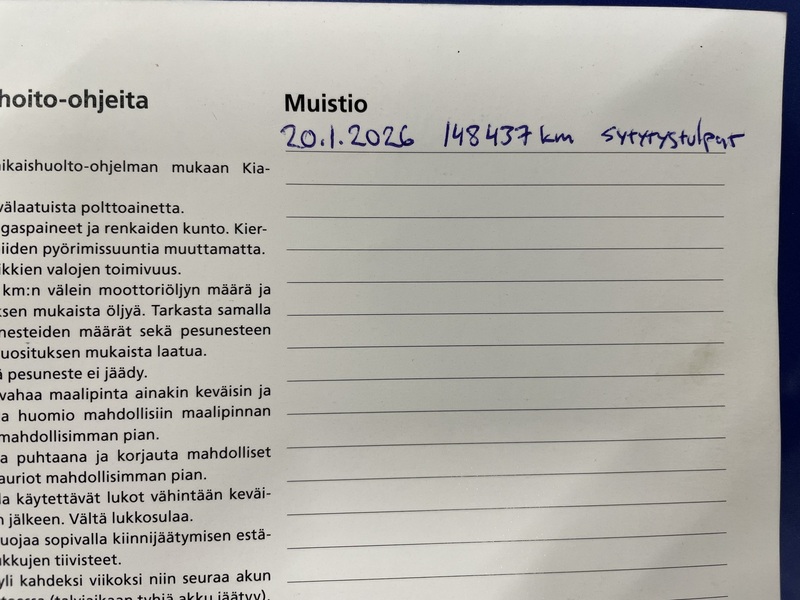 hoito-ohjeita
ikaishuolto-ohjelman mukaan Kia-
välaatuista polttoainetta.
gaspaineet ja renkaiden kunto. Kier-
iiden pyörimissuuntia muuttamatta.
ikkien valojen toimivuus.
km:n välein moottoriöljyn määrä ja
sen mukaista öljyä. Tarkasta samalla
nesteiden määrät sekä pesunesteen
uosituksen mukaista laatua.
ä pesuneste ei jäädy.
vahaa maalipinta ainakin keväisin ja
a huomio mahdollisiin maalipinnan
mahdollisimman pian.
a puhtaana ja korjauta mahdolliset
auriot mahdollisimman pian.
la käytettävät lukot vähintään keväi-
n jälkeen. Vältä lukkosulaa.
uojaa sopivalla kiinnijäätymisen estä-
ukkujen tiivisteet.
yli kahdeksi viikoksi niin seuraa akun
(talviaikaan tyhjä akku jäätyy).
Muistio
20.1.2026 148437 km sytytystulpat